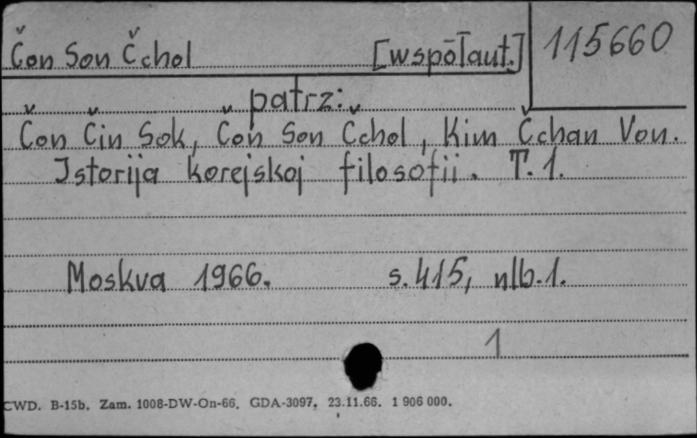 Čon Son Čchol [wspōłaut.]
115660
patrz:
Čon Čin Sok, Čon Son Čchol, Kim Čchan Von.
Istorija korejskoj filosofii. T. 1.
Moskva 1966. s. 415, nlb. 1.
1
CWD. B-15b. Zam. 1008-DW-On-66. GDA-3097. 23.11.66. 1 906 000.